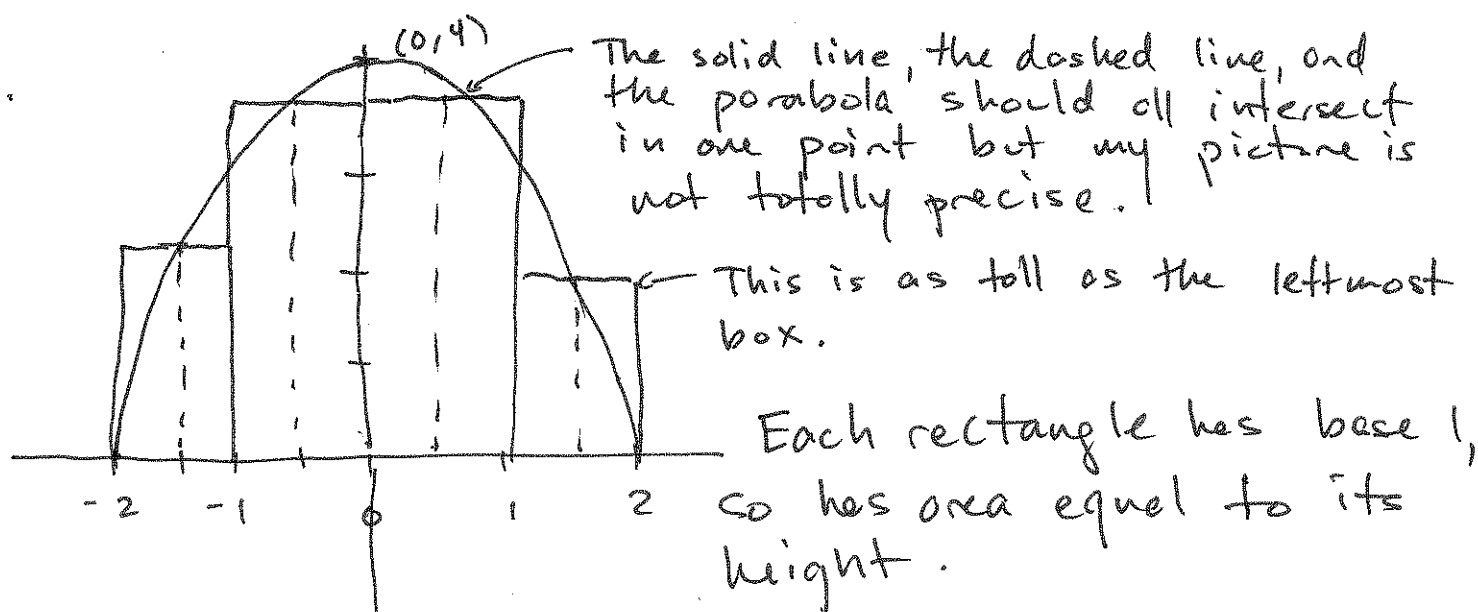 (0,4)
The solid line, the dashed line, and
the parabola should all intersect
in one point but my picture is
not totally precise.
This is as tall as the leftmost
box.
Each rectangle has base 1,
so has area equal to its
height.
-2 -1 0 1 2